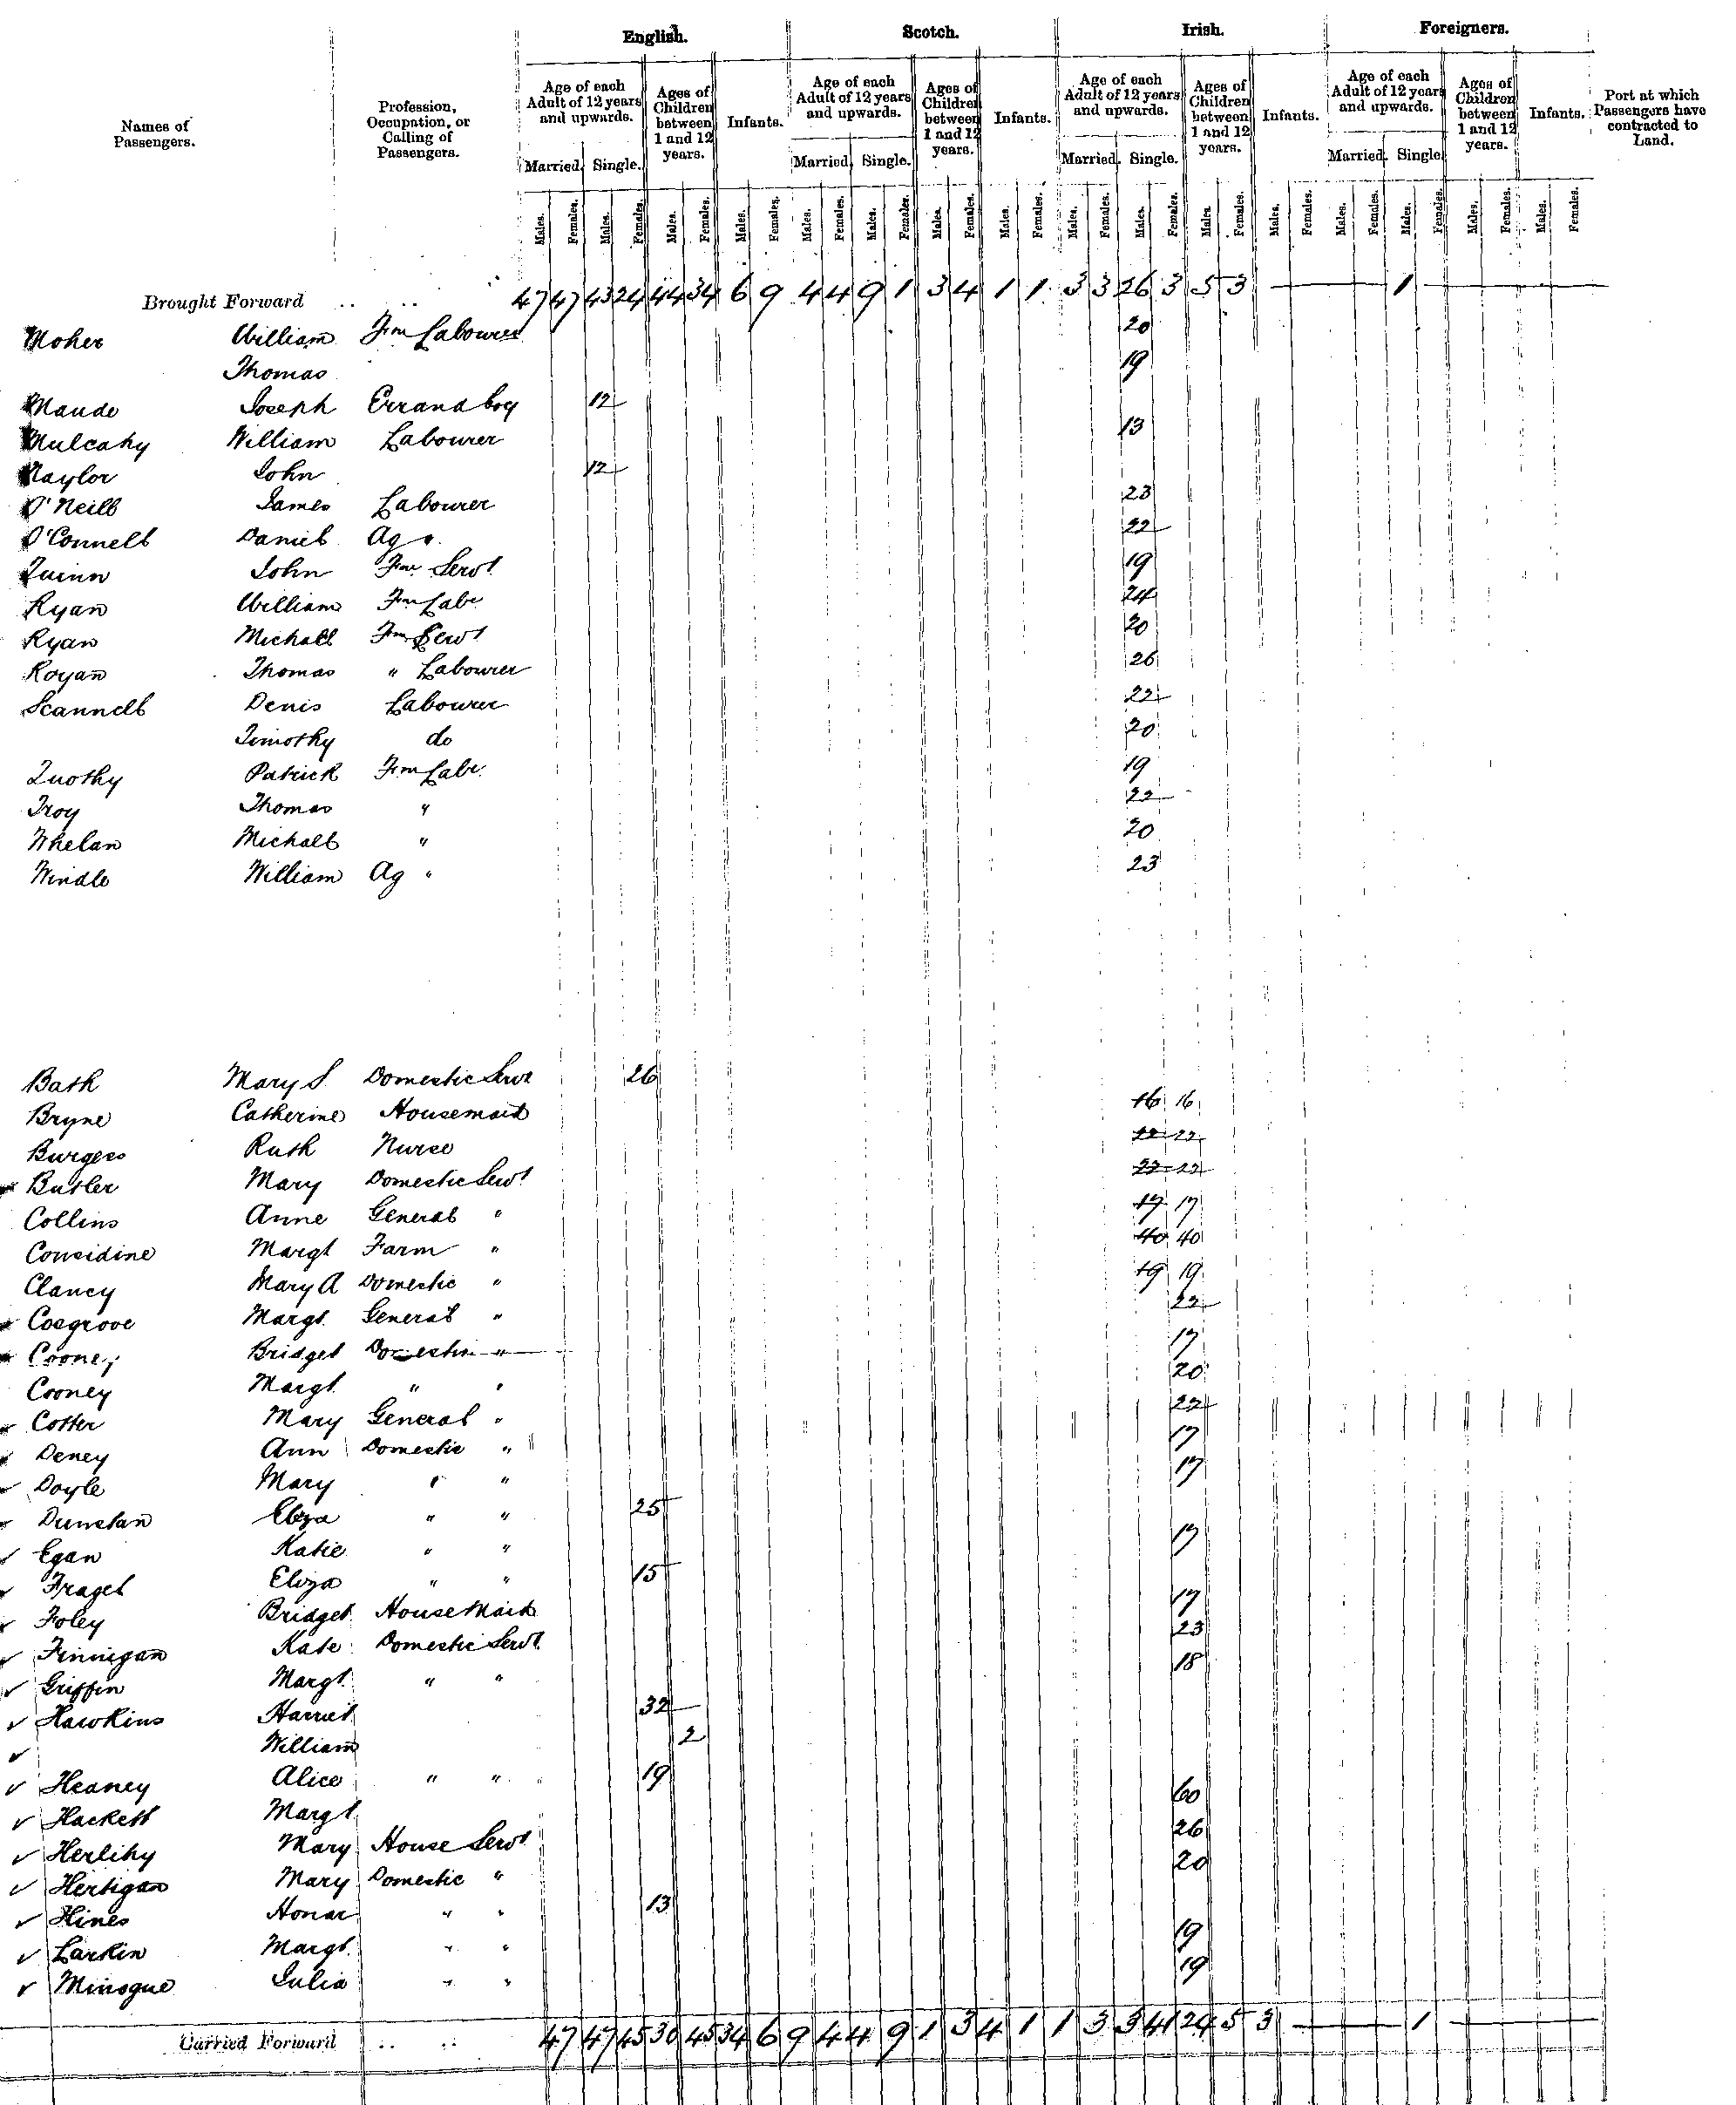 English. Scotch. Irish. Foreigners.
Names of Passengers. Profession, Occupation, or Calling of Passengers. Age of each Adult of 12 years and upwards. Ages of Children between 1 and 12 years. Infants. Age of each Adult of 12 years and upwards. Ages of Children between 1 and 12 years. Infants. Age of each Adult of 12 years and upwards. Ages of Children between 1 and 12 years. Infants. Age of each Adult of 12 years and upwards. Ages of Children between 1 and 12 years. Infants. Port at which Passengers have contracted to Land.
Married. Single. Married. Single. Married. Single. Married. Single.
Males. Females. Males. Females. Males. Females. Males. Females. Males. Females. Males. Females. Males. Females. Males. Females. Males. Females. Males. Females. Males. Females. Males. Females. Males. Females. Males. Females. Males. Females. Males. Females.
Brought Forward .. .. 47 47 43 24 44 34 6 9 4 4 9 1 3 4 1 1 3 3 26 3 5 3 1
Moher William Fm Labourer 20
Thomas 19
Maude Joseph Errand boy 12
Mulcahy William Labourer 13
Naylor John 12
O'Neill James Labourer 23
O'Connell Daniel Ag " 22
Quinn John Fm Servt 19
Ryan William Fm Labr 24
Ryan Michall Fm Servt 20
Royan Thomas " Labourer 26
Scannell Denis Labourer 22
Timothy do 20
Tuothy Patrick Fm Labr. 19
Troy Thomas " 22
Whelan Michall " 20
Windle William Ag " 23
Bath Mary S. Domestic Servt 26
Bryne Catherine Housemaid 16 16
Burgess Ruth Nurse 22 22
Butler Mary Domestic Servt 22 22
Collins Anne General " 17 17
Considine Margt Farm " 40 40
Clancy Mary A Domestic " 19 19
Cosgrove Margt. General " 22
Cooney Bridget Domestic " 17
Cooney Margt. " " 20
Cotter Mary General " 22
Deney Ann Domestic " 17
Doyle Mary " " 17
Dunstan Eliza " " 25
Egan Katie " " 17
Fragel Eliza " " 15
Foley Bridget House Maid 17
Finnigan Kate Domestic Servt. 23
Griffin Margt. " " 18
Hawkins Harriet 32
William 2
Heaney Alice " " 19
Hackett Margt. 60
Herlihy Mary House Servt 26
Hertigan Mary Domestic " 20
Hines Honar " " 13
Larkin Margt. " " 19
Minogue Julia " " 19
Carried Forward .. .. 47 47 45 30 45 34 6 9 4 4 9 1 3 4 1 1 3 3 41 24 5 3 1